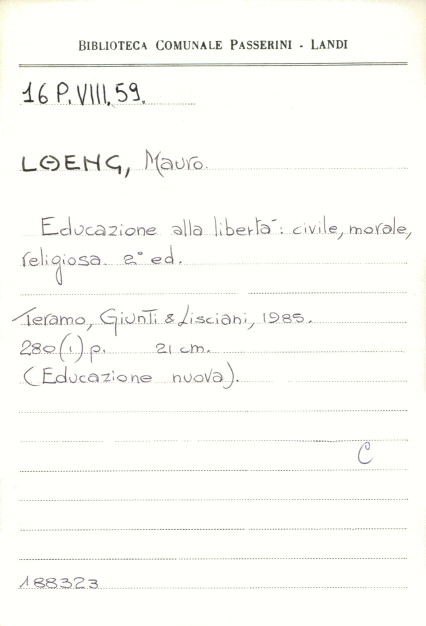 BIBLIOTECA COMUNALE PASSERINI - LANDI
16 P.VIII.59.
LOENG, Mauro.
Educazione alla libertà: civile, morale,
religiosa. 2° ed.
Teramo, Giunti & Lisciani, 1985.
280(1) p. 21 cm.
(Educazione nuova).
C
188323